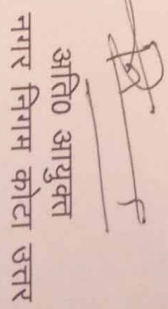 अति0 आयुक्त
नगर निगम कोटा उत्तर